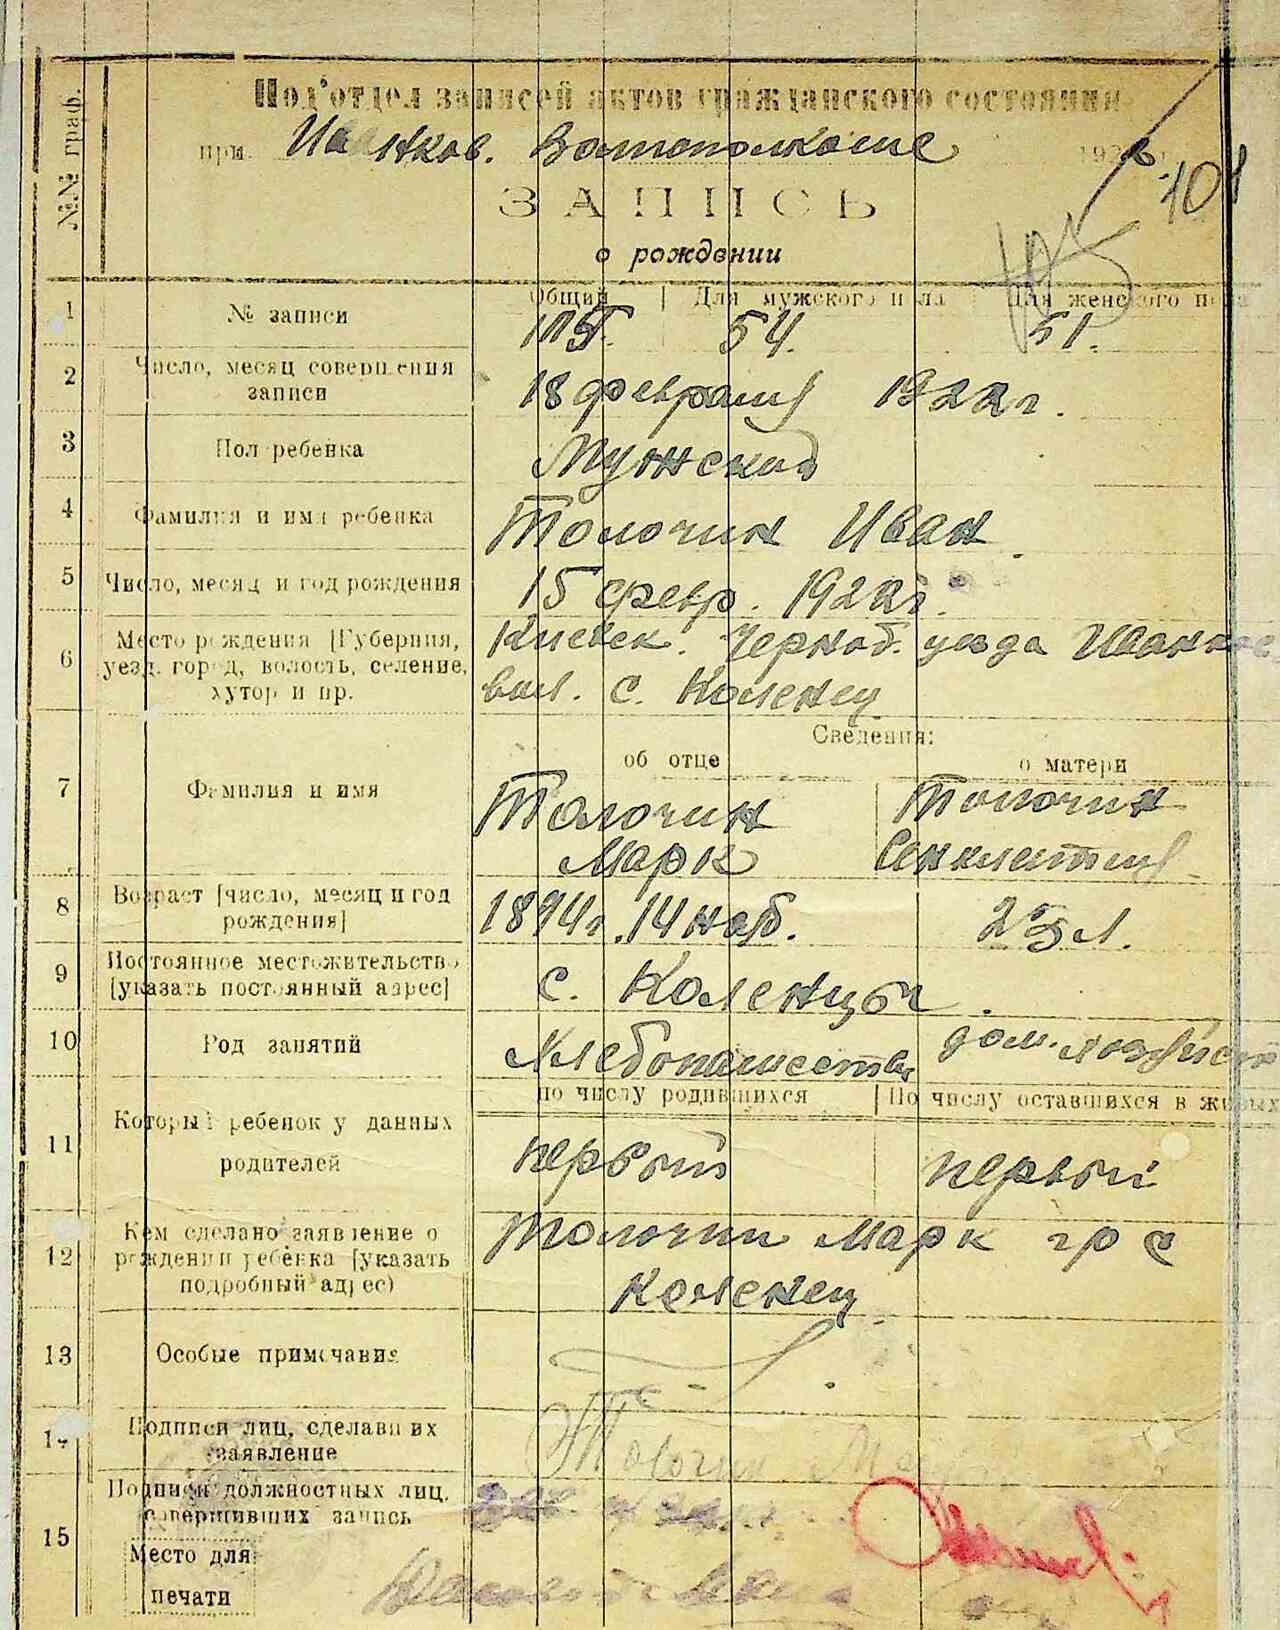 №№ граф.
Под'отдел записей актов гражданского состояния
при Иванков. Волисполкоме 192
ЗАПИСЬ
о рождении
101
1 № записи
Общий Для мужского пола Для женского пола
105. 54. 51.
2 Число, месяц совершения записи
18 февраля 1922 г.
3 Пол ребенка
Мужской
4 Фамилия и имя ребенка
Толочин Иван
5 Число, месяц и год рождения
15 февр. 1922 г.
6 Место рождения [Губерния, уезд, город, волость, селение, хутор и пр.
Киевск. Черноб. уезда Иванков
вол. с. Коленец
Сведения:
об отце о матери
7 Фамилия и имя
Толочин Толочин
Марк Сенклетия
8 Возраст [число, месяц и год рождения]
1894 г. 14 нояб. 25 л.
9 Постоянное местожительство [указать постоянный адрес]
с. Коленцы.
10 Род занятий
Хлебопашество дом. хозяйст
по числу родившихся По числу оставшихся в живых
11 Который ребенок у данных родителей
первый первый
12 Кем сделано заявление о рождении ребенка [указать подробный адрес)
Толочин Марк гр с
Коленец
13 Особые примечания
14 Подписи лиц, сделавших заявление
Толочин
15 Подписи должностных лиц, совершивших запись
Место для печати